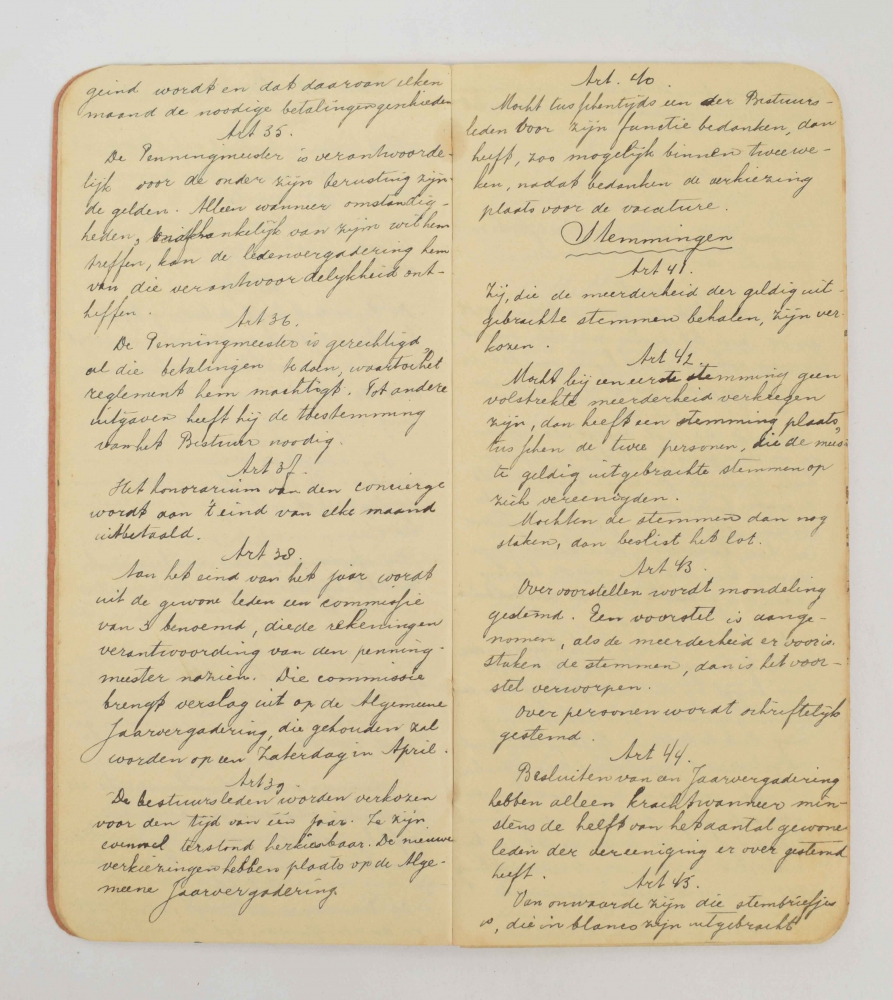 geind wordt en dat daarvan elken
maand de noodige betalingen geschieden
Art 35.
De Penningmeester is verantwoorde-
lijk voor de onder zijn berusting zijn-
de gelden. Alleen wanneer omstandig-
heden, onafhankelijk van zijn wil hem
treffen, kan de ledenvergadering hem
van die verantwoordelijkheid ont-
heffen.
Art 36.
De Penningmeester is gerechtigd
al die betalingen te doen, waartoe het
reglement hem machtigt. Tot andere
uitgaven heeft hij de toestemming
van het Bestuur noodig.
Art 37.
Het honorarium van den concierge
wordt aan 't eind van elke maand
uitbetaald.
Art 38.
Aan het eind van het jaar wordt
uit de gewone leden een commissie
van 3 benoemd, die de rekeningen
verantwoording van den penning-
meester nazien. Die commissie
brengt verslag uit op de Algemeene
Jaarvergadering, die gehouden zal
worden op een Zaterdag in April.
Art 39
De bestuursleden worden verkozen
voor den tijd van één jaar. Ze zijn
evenwel terstond herkiesbaar. De nieuwe
verkiezingen hebben plaats op de Alge-
meene Jaarvergadering
Art. 40.
Mocht tusschentijds een der Bestuurs-
leden voor zijn functie bedanken, dan
heeft, zoo mogelijk binnen twee we-
ken, nadat bedanken de verkiezing
plaats voor de vacature.
Stemmingen
Art 41.
Zij, die de meerderheid der geldig uit-
gebrachte stemmen behalen, zijn ver-
kozen.
Art 42.
Mocht bij een eerste stemming geen
volstrekte meerderheid verkregen
zijn, dan heeft een stemming plaats,
tusschen de twee personen, die de mees-
te geldig uitgebrachte stemmen op
zich vereenigden.
Mochten de stemmen dan nog
staken, dan beslist het lot.
Art 43.
Over voorstellen wordt mondeling
gestemd. Een voorstel is aange-
nomen, als de meerderheid er voor is.
Staken de stemmen, dan is het voor-
stel verworpen.
Over personen wordt schriftelijk
gestemd.
Art 44.
Besluiten van een Jaarvergadering
hebben alleen kracht wanneer min-
stens de helft van het aantal gewone
leden der vereeniging er over gestemd
heeft.
Art 45.
Van onwaarde zijn die stembriefjes
, die in blanco zijn uitgebracht